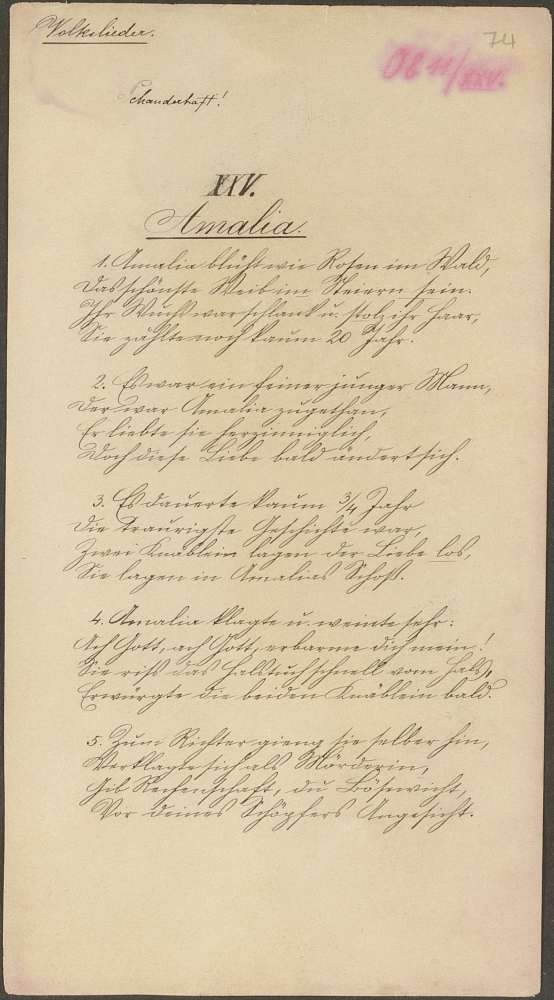 Volkslieder.
74
II 11/XXV.
Schauderhaft!
XXV.
Amalia.
1. Amalia blüht wie Rosen im Wald,
Das schönste Weib im Steiern sein.
Ihr Wuchs war schlank u. stolz ihr Haar,
Sie zählte noch kaum 20 Jahr.
2. Es war ein feiner junger Mann,
Der war Amalia zugethan,
Er liebte sie herzinniglich,
Doch diese Liebe bald ändert sich.
3. Es dauerte kaum 3/4 Jahr
Die traurigste Geschichte war,
Zwei Knäblein lagen der Liebe los,
Sie lagen in Amalias Schoß.
4. Amalia klagte u. weinte sehr:
Ach Gott, ach Gott, erbarme dich mein!
Sie riß das Halstuch schnell vom Hals,
Erwürgte die beiden Knäblein bald.
5. Zum Richter gieng sie selber hin,
Verklagte sich als Mörderin,
Gib Rechenschaft, du Bösewicht,
Vor deines Schöpfers Angesicht.